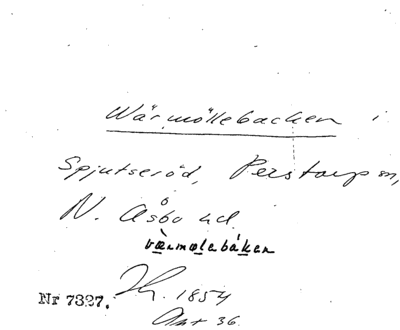 Wärmöllebacken i
Spjutseröd, Perstorp sn,
N. Åsbo hd.
værmølebáken
Nr 7327. 1854
Ant 36.